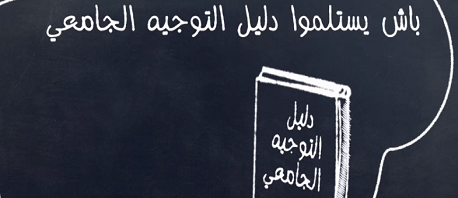 باش يستلموا دليل التوجيه الجامعي
دليل
التوجيه
الجامعي